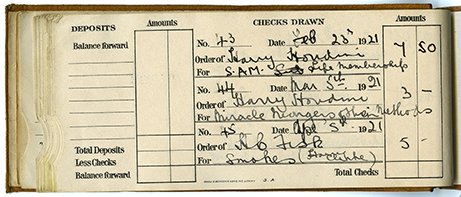 DEPOSITS Amounts CHECKS DRAWN Amounts
Balance forward No. 43 Date Feb 23rd 1921
Order of Harry Houdini 7 50
For S.A.M. Life Membership
No. 44 Date Mar 5th 1921
Order of Harry Houdini 3 -
For Miracle Mongers & their Methods
No. 45 Date Apr 5th 1921
Total Deposits Order of 5 -
Less Checks For Smokes
Balance forward Total Checks